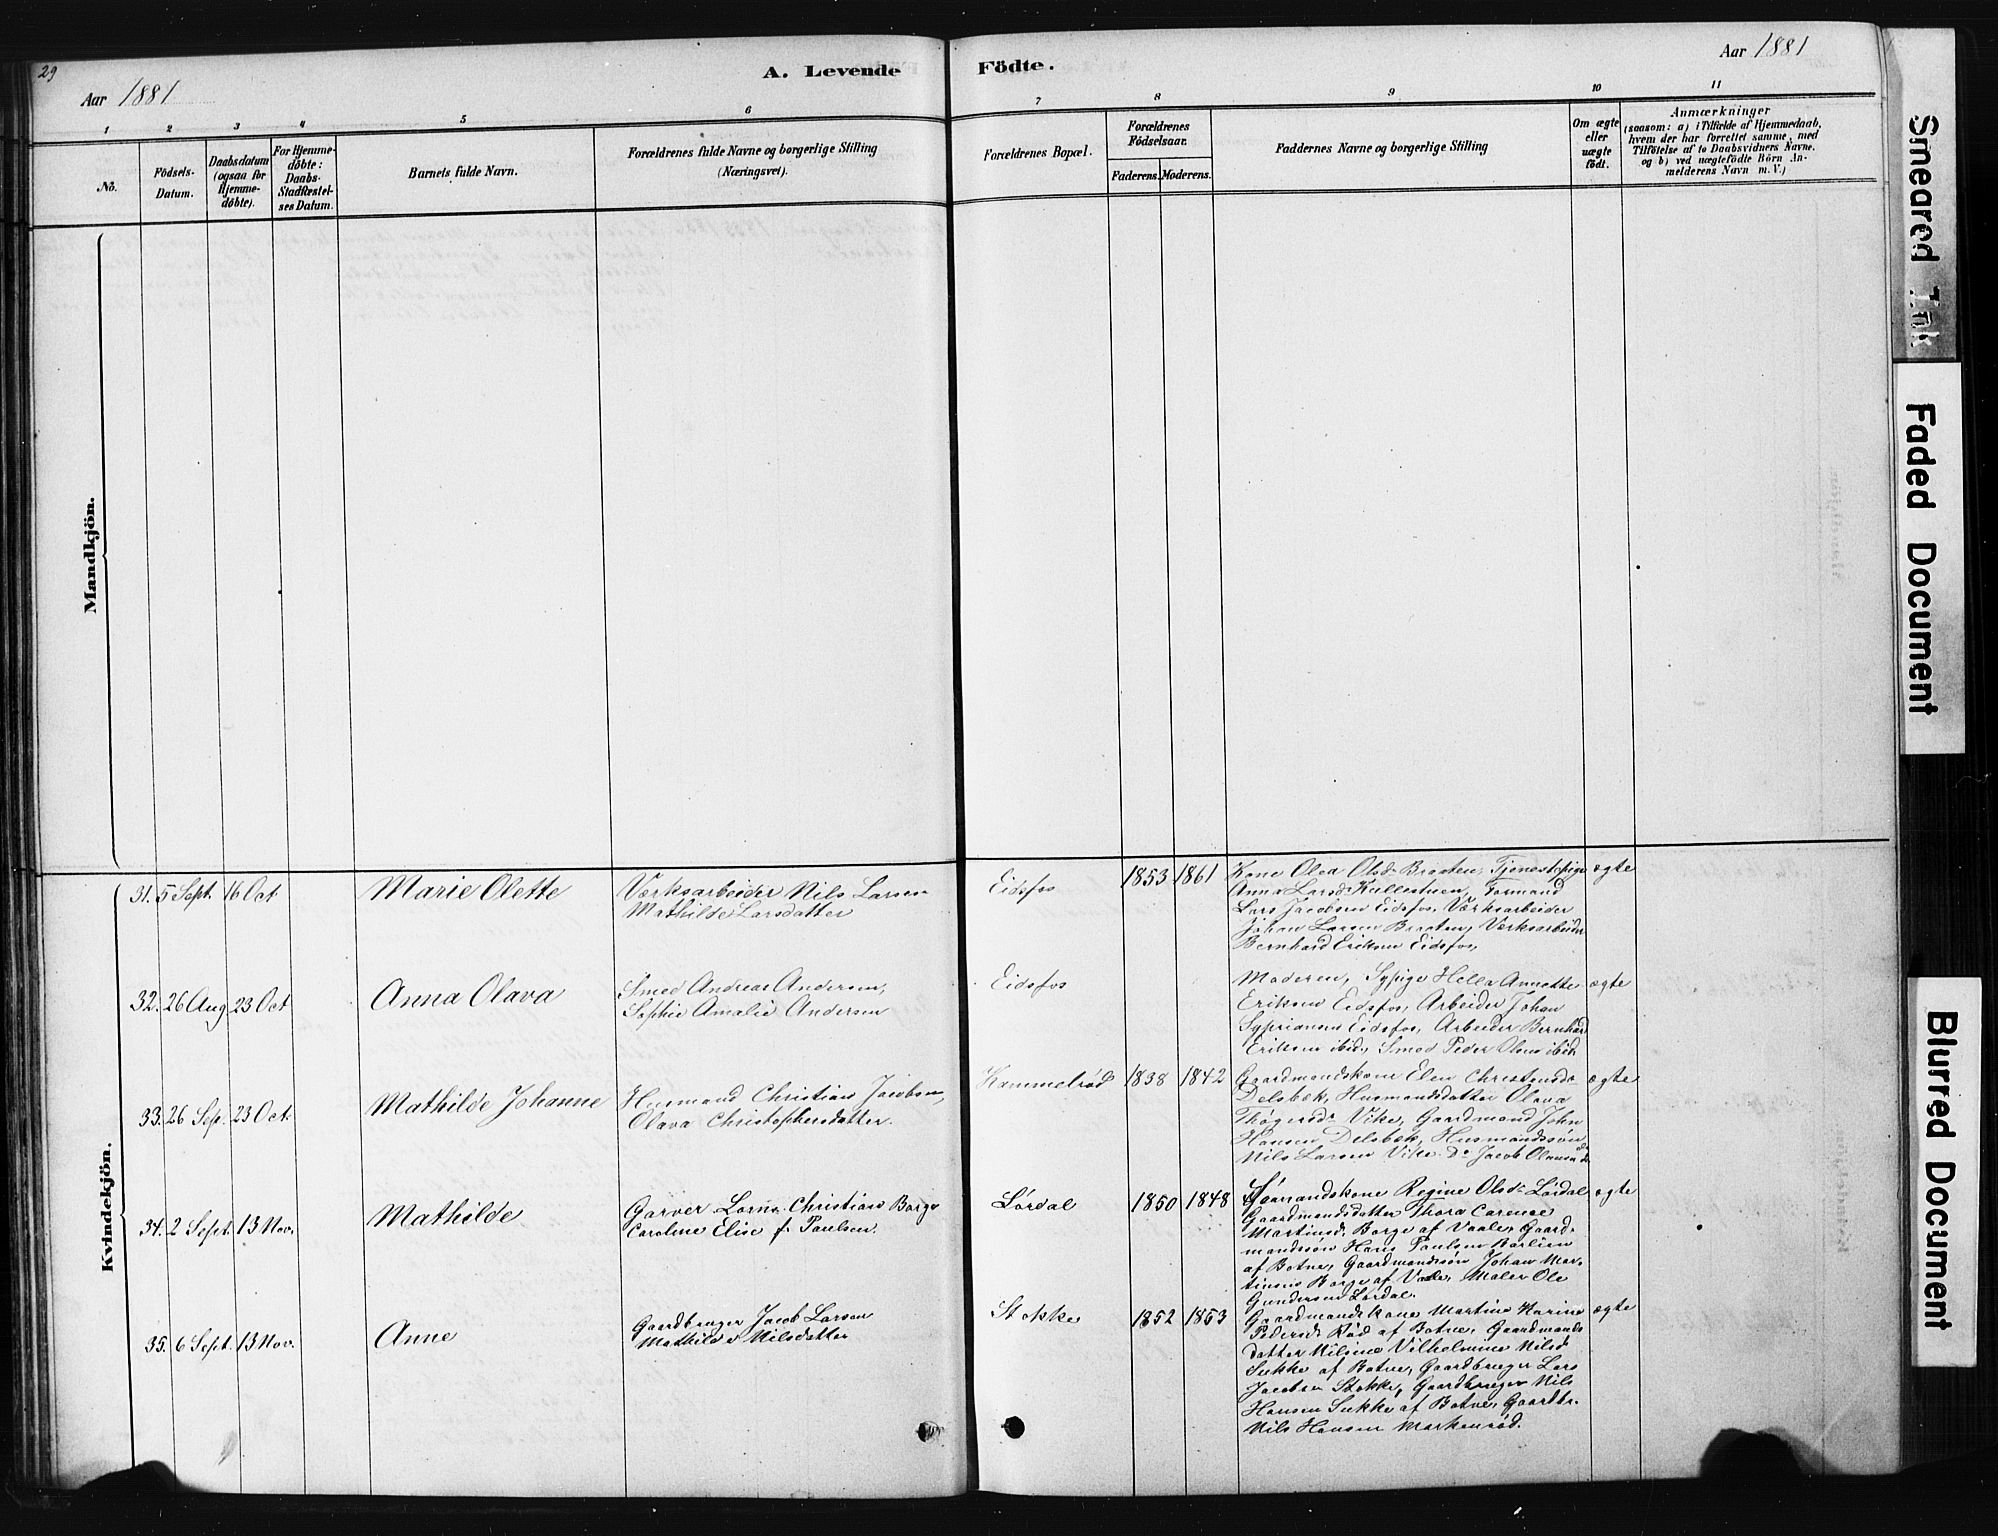 29
Aar 1881
A. Levende
Födte.
Aar 1881
1 2 3 4 5 6 7 8 9 10 11
No.
Födsels-
Datum.
Daabsdatum
(ogsaa for
Hjemme-
döbte).
For Hjemme-
döbte:
Daabs-
Stadfæstel-
ses Datum.
Barnets fulde Navn.
Forældrenes fulde Navne og borgerlige Stilling
(Næringsvei).
Forældrenes Bopæl.
Forældrenes
Födselsaar.
Faderens. Moderens.
Faddernes Navne og borgerlige Stilling
Om ægte
eller
uægte
födt.
Anmærkninger
(saasom: a) i Tilfælde af Hjemmedaab,
hvem der har forrettet samme, med
Tilföielse af to Daabsvidners Navne,
og b) ved uægtefödte Börn An-
melderens Navn m. V.)
Mandkjön.
Kvindekjön.
31. 5 Sept. 16 Oct
Marie Olette
Værksarbeider Nils Larsen
Mathilde Larsdatter
Eidsfos
1853 1861
Kone Olea Olsdr Braaten, Tjenestepige
Anna Larsdr Kullestuen, Formand
Lars Jacobsen Eidsfos, Værksarbeider
Johan Larsen Braaten, Værksarbeider
Bernhard Eriksen Eidsfos,
ægte
32. 26 Aug 23 Oct
Anna Olava
Smed Andreas Andersen,
Sophie Amalie Andersen
Eidsfos
Moderen, Sypige Hella Annette
Eriksen Eidsfos, Arbeider Johan
Sypriansen Eidsfos, Arbeider Bernhard
Eriksen ibid., Smed Peder Olsen ibid.
ægte
33. 26 Sep. 23 Oct.
Mathilde Johanne
Husmand Christian Jacobsen,
Olava Christophersdatter.
Hammelrød
1838 1842
Gaardmandskone Elen Christensdr
Delsbæk, Husmandsdatter Olava
Thøgersdr Vike, Gaardmand John
Hansen Delsbæk, Husmandssøn
Nils Larsen Vike. Do Jacob Olausen do
ægte
34. 2 Sept. 13 Nov.
Mathilde
Garver Lorns Christian Borge
Caroline Elise f. Paulsen.
Lørdal
1850 1848
Gaarmandskone Regine Olsdr Lørdal
Gaardmandsdatter Thora Carence
Martinsdr Borge af Vaale, Gaard-
mandssøn Hans Paulsen Barlien
af Botne, Gaardmandssøn Johan Mar-
tinsen Borge af Vale, Maler Ole
Gundersen Lørdal.
ægte
35. 6 Sept. 13 Nov.
Anne
Gaardbruger Jacob Larsen
Mathilde Nilsdatter
Stokke
1852 1853
Gaardmandskone Martine Karine
Pedersdr Rød af Botne, Gaardmands
datter Nilsine Vilhelmine Nilsdr
Sukke af Botne, Gaardbruger Lars
Jacobsen Stokke, Gaardbruger Nils
Hansen Sukke af Botne, Gaardbr.
Nils Hansen Markenrød.
ægte
Smeared Ink
Faded Document
Blurred Document